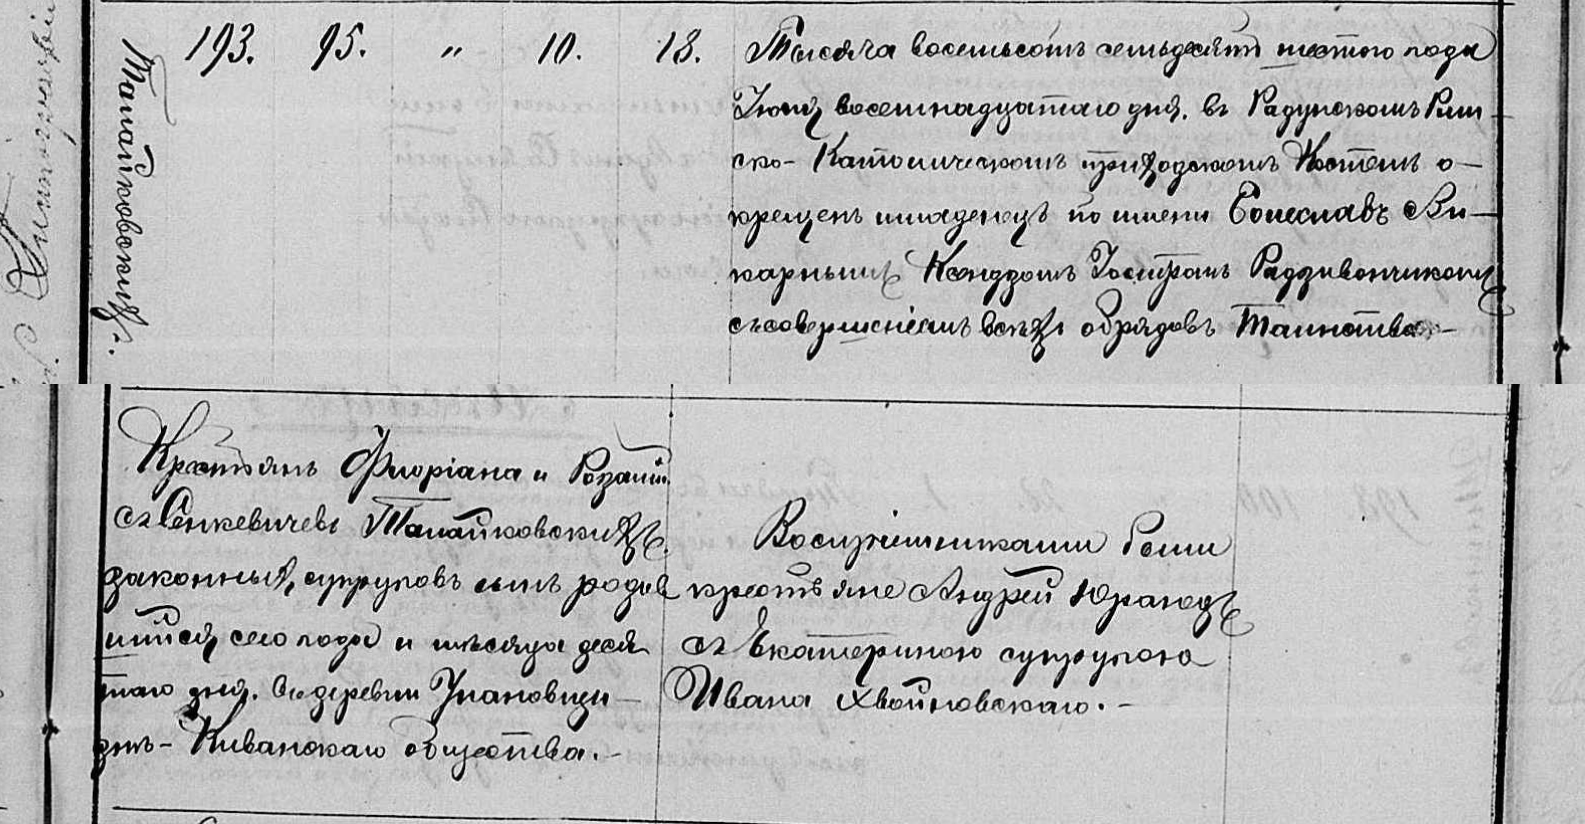 193. 95. " 10. 18. Тысяча восемьсотъ семьдесятъ шестого года
Іюля восемнадцатаго дня, въ Радунскомъ Рим-
ско-Католическомъ приходскомъ Костелѣ о-
крещенъ младенецъ по имени Болеславъ Ви-
карнымъ Ксендзомъ Іосифомъ Радзивончикомъ
съ совершеніемъ всѣхъ обрядовъ Таинства.-
Талайковскихъ.
Крестьянъ Флоріана и Розаліи
съ Сенкевичевъ Талайковскихъ
законныхъ супруговъ сынъ родив
шійся сего года и мѣсяца деся
таго дня. Въ деревни
Киванскаго общества.-
Воспріемниками были
крестьяне Андрей Юрагодъ
съ Екатериною супругою
Ивана Хвойновскаго.-